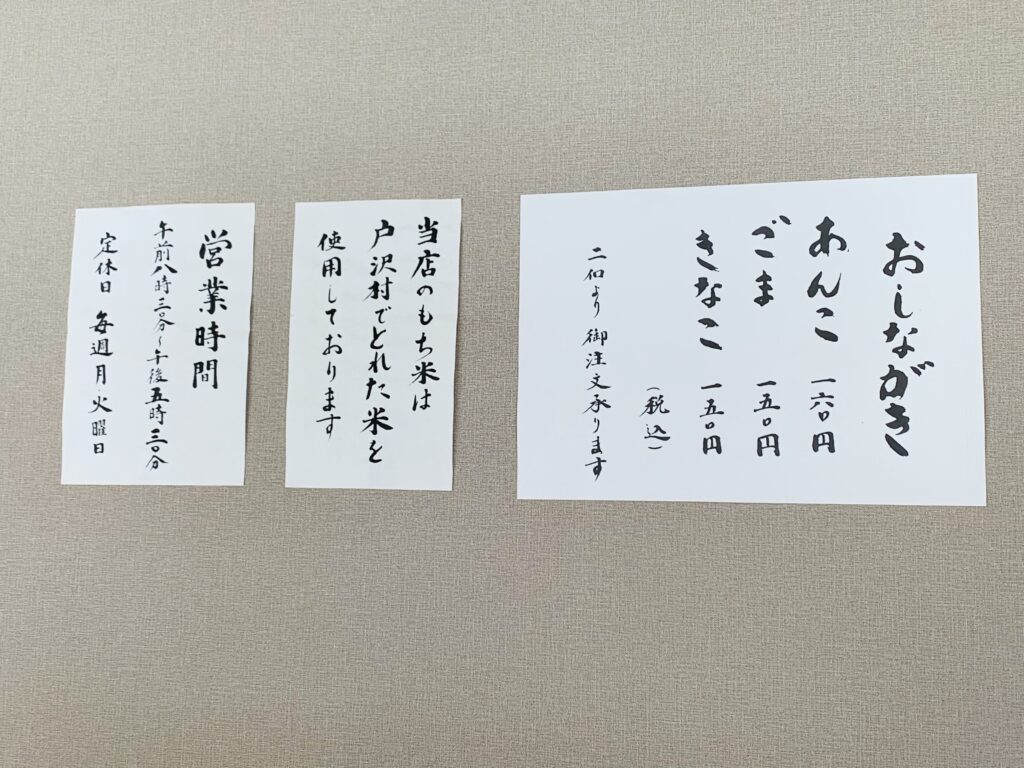 おしながき
あんこ 一六〇円
ごま 一五〇円
きなこ 一五〇円
(税込)
二個より御注文承ります
当店のもち米は
戸沢村でとれた米を
使用しております
営業時間
午前八時三〇分～午後五時三〇分
定休日 毎週月・火曜日